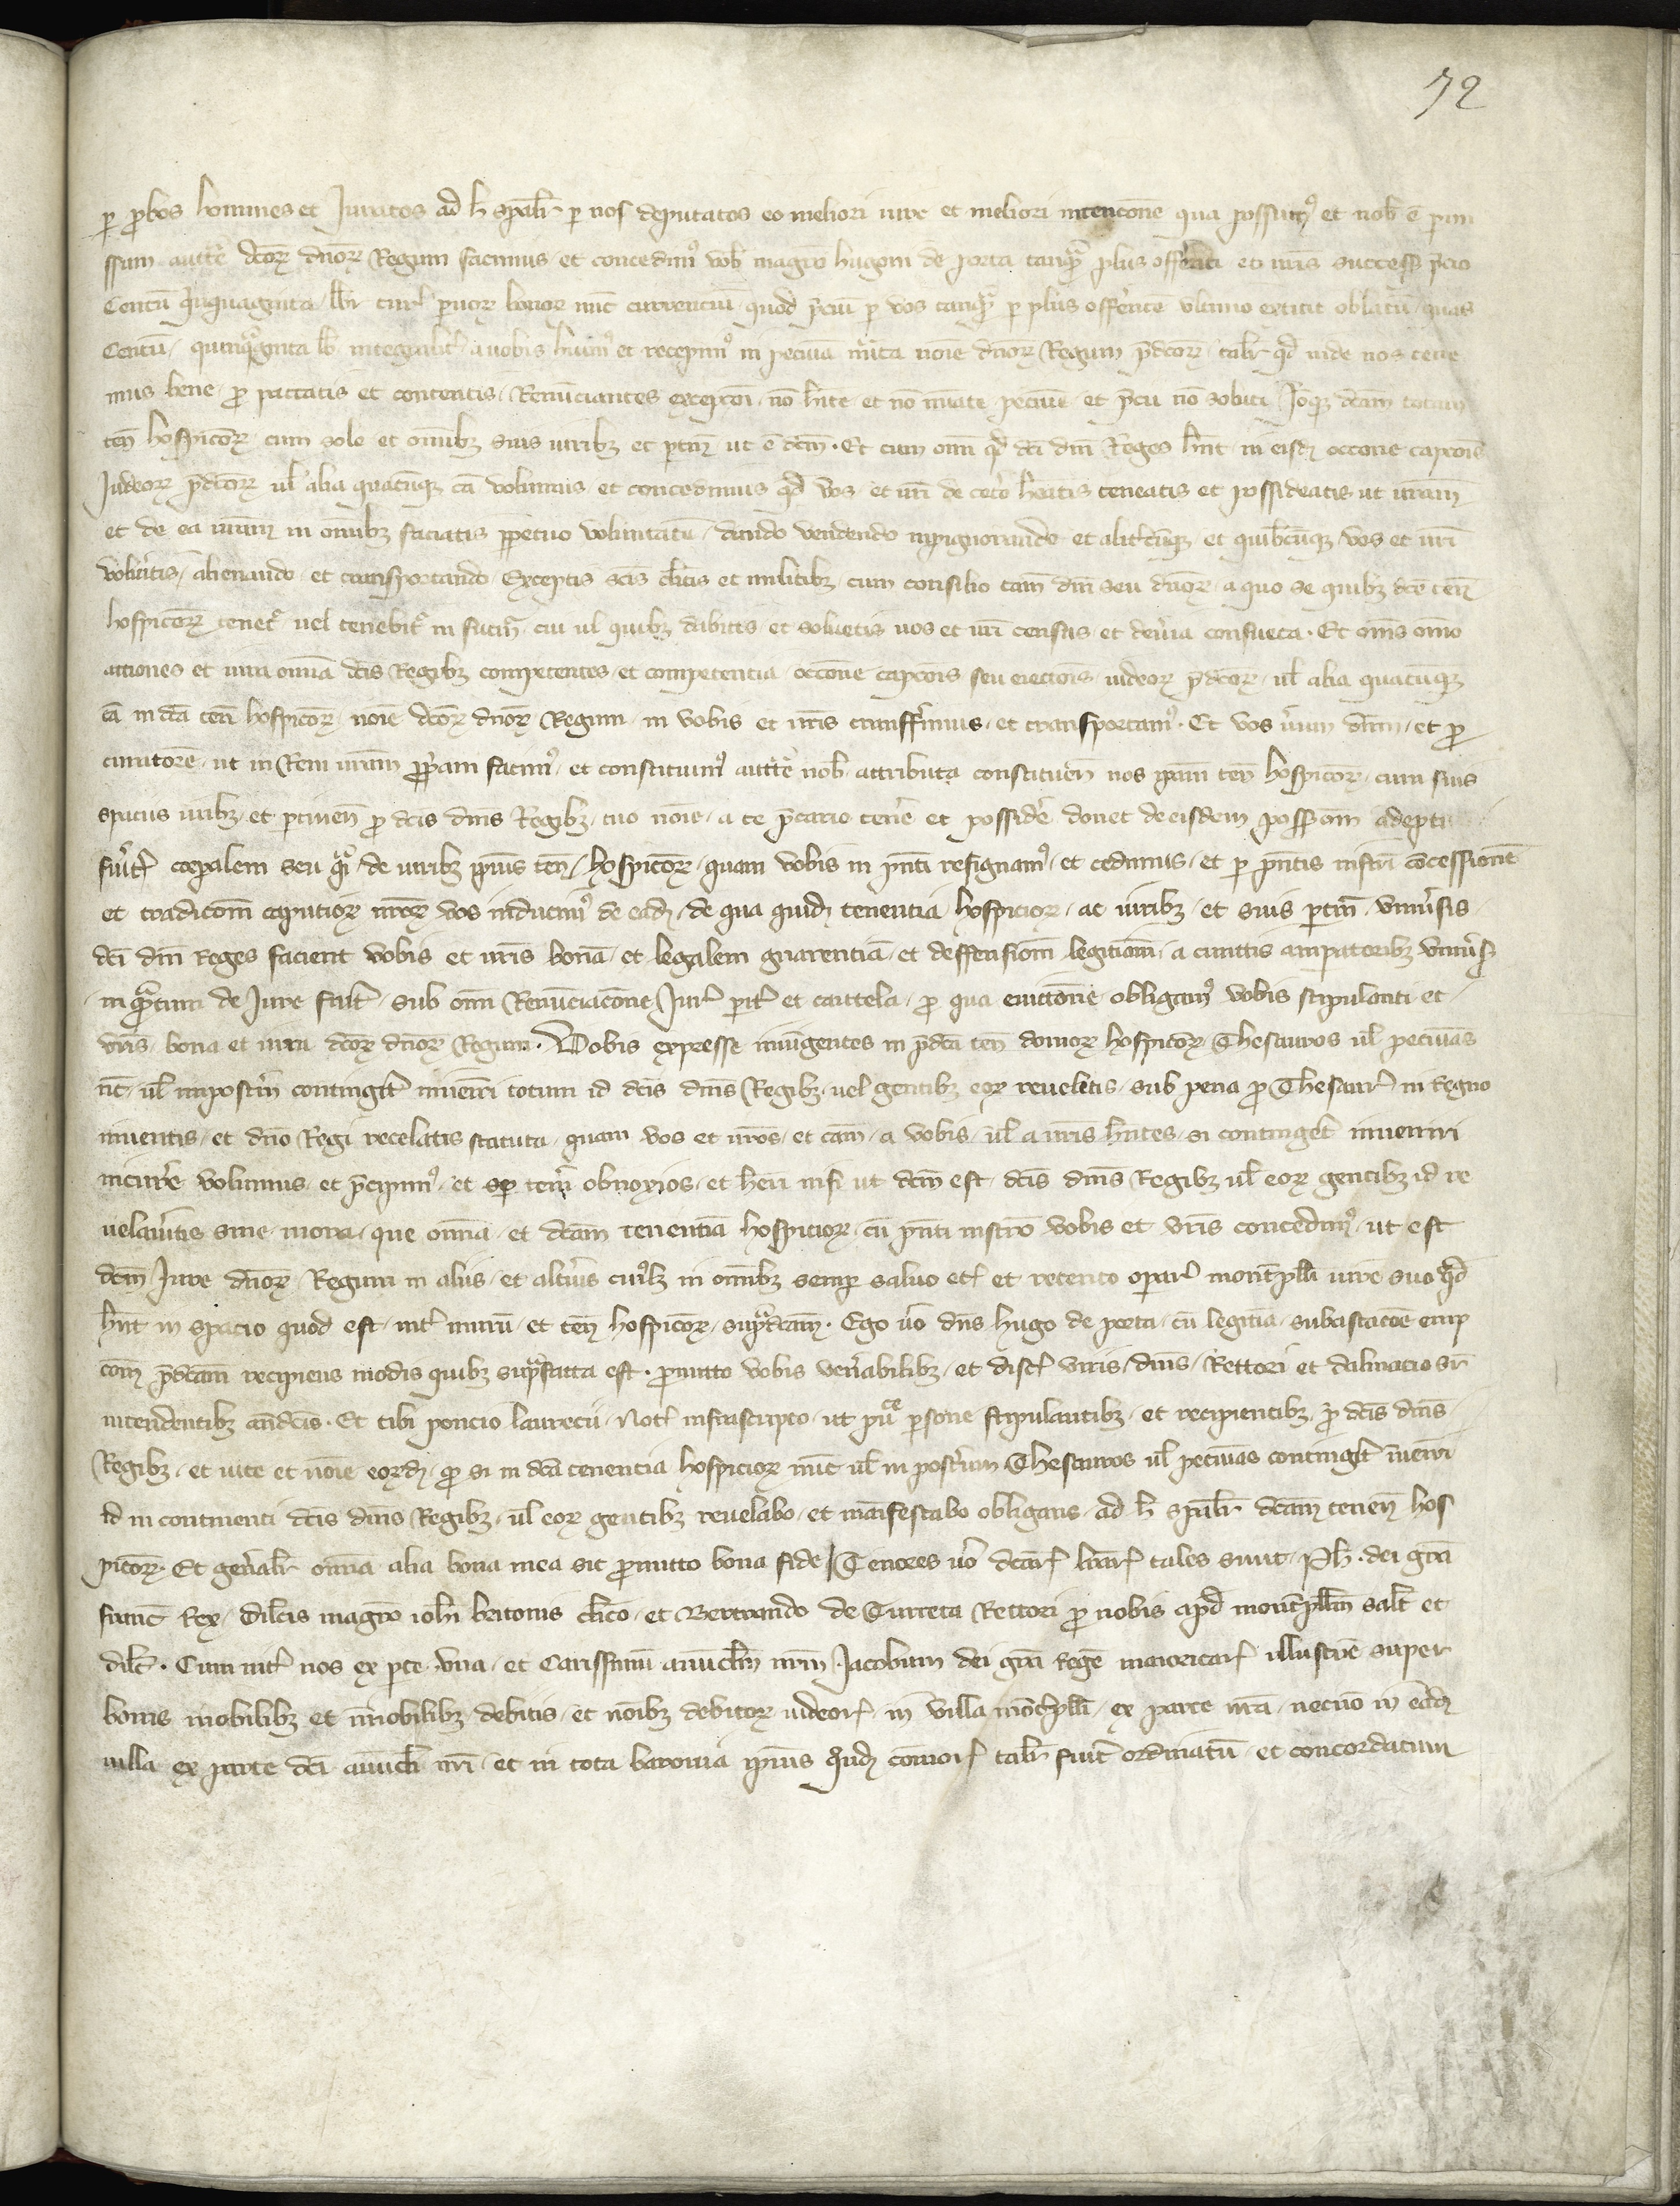 72
ꝑ ꝓbos homines et Juratos ad h̄ spāl'r ꝑ nos deputatos eo meliori iure et meliori intencōne qua possumꝰ et nob̄ ē pmi
ssum auct̄te dc̄oꝝ dn̄oꝝ Regum facimus et concedimꝰ vob̄ magr̄o hugoni de porta tanqᷓ plus offerenti et vr̄is success̄ p̄cio
Centū qͥnquaginta lib̄r tur̄ p̄uoꝝ bonoꝝ nūc currenciū quod p̄ciū ꝑ vos tanqᷓ ꝑ plus offerentē ultimo extitit oblatū quas
Centū quinqᷓginta lb̄ integralit̄ a vobis h̄uimꝰ et recepimꝰ in pecūia nūata noīe dn̄oꝝ Regum p̄dc̄oꝝ tal'r qd̄ inde nos tene
mus bene ꝓ paccatis et contentis Renūciantes excepcōi nō h̄ite et nō nūate pecūie et p̄cii nō soluti Jōqꝫ dc̄am totam
ten̄ hospicioꝝ cum solo et omībꝫ suis iuribꝫ et ꝑtin̄ ut ē dc̄m. Et cum omī qd̄ dc̄i dn̄i Reges h̄nt in eisdꝫ occōne capcōis
Judeoꝝ p̄dc̄oꝝ ul̄ alia quacūqꝫ cā volumus et concedimus qd̄ vos et vr̄i de cet̄o h̄eatis teneatis et possideatis ut vr̄am
et de ea vr̄am in omībꝫ faciatis ꝑpetuo voluntatē dando vendendo inpignorando et alit̄cūqꝫ et quibꝫcūqꝫ vos et vr̄i
volūitis alienando et transportando Exceptis sc̄is cl̄icis et militibꝫ cum consilio tam̄ dn̄i seu dn̄oꝝ a quo seu quibꝫ dc̄a ten̄
hospicioꝝ tenet̄ vel tenebit̄ in futur̄ cui ul̄ quibꝫ dabitis et soluetis vos et vr̄i census et deūia consueta. Et om̄s om̄o
actiones et iura omīa dc̄is Regibꝫ competentes et competentia occōne capcōis seu eiectōis iudeoꝝ p̄dc̄oꝝ ul̄ alia quacūqꝫ
cā in dc̄a ten̄ hospicioꝝ noīe dc̄oꝝ dn̄oꝝ Regum in vobis et vr̄is transferimus et transportamꝰ. Et vos verum dn̄m et ꝓ
curatorē ut in Rem vr̄am ꝓpriam facimꝰ et constituimꝰ auct̄te nob̄ attributa constituen̄ nos ip̄am ten̄ hospicioꝝ cum suis
spaciis iuribꝫ et ꝑtinen̄ ꝓ dc̄is dn̄is Regibꝫ tuo noīe a te p̄cario ten̄e et posside̅ donec de eisdem possessiōem adepti
fuit̄ corꝑalem seu qᷓi de iuribꝫ ip̄ius ten̄ hospicioꝝ quam vobis in p̄nti resignamꝰ et cedimus et ꝑ p̄ntis instr̄i cōcessionē
et tradicōem caputioꝝ nr̄oꝝ vos inducimꝰ de eadꝫ de qua quidꝫ tenentia hospicioꝝ ac iuribꝫ et suis ꝑtin̄ uniūsis
dc̄i dn̄i Reges facient vobis et vr̄is bonā et legalem guarentiā et deffensiōem legitimā a cunctis amparatoribꝫ uniūs̄
inqᷓntum de Jure fuit̄ sub omī Renūciacōne Jur̄ ꝑit̄ et cautela ꝓ qua euictōne obligamꝰ vobis stipulanti et
vr̄is bona et iura dc̄oꝝ dn̄oꝝ Regum. Vobis expresse iniūgentes in p̄dc̄a ten̄ domoꝝ hospicioꝝ Thesauros ul̄ pecūias
nc̄ ul̄ inposterū contingit̄ inueniri totum id dc̄is dn̄is Regibꝫ vel gentibꝫ eoꝝ reueletis sub pena ꝓ Thesaur̄ in Regno
inuentis et dn̄o Regi recelatis statuta quam vos et vr̄os et cām a vobis ul̄ a vr̄is h̄ntes si contingit̄ inueniri
incurr̄e volumus et p̄cipimꝰ et seꝑ ten̄i obnoxios et h̄eri nisi ut dc̄m est dc̄is dn̄is Regibꝫ ul̄ eoꝝ gentibꝫ id re
uelaūitis sine mora que omīa et dc̄am tenentiā hospicioꝝ cū p̄nti instr̄o vobis et vr̄is concedimꝰ ut est
dc̄m Jure dn̄oꝝ Regum in aliis et alteriūs cuiꝰlꝫ in omībꝫ semꝑ saluo etc̄ et retento oꝑar̄ montispll̄i iure suo qd̄
h̄nt in spacio quod est int̄ murū et ten̄ hospicioꝝ supᷓdc̄am. Ego ūo dn̄s hugo de porta cū legitīa subastacōe emp
cōem p̄dc̄am recipiens modis quibꝫ supᷓ facta est. ꝓmitto vobis ven̄abilibꝫ et disc̄ viris dn̄is Rectori et dalmacio sr̄
intendentibꝫ an̄dc̄is. Et tibi poncio laurecii Not̄ infrascripto ut puᷓe ꝑsone stipulantibꝫ et recipientibꝫ ꝓ dc̄is dn̄is
Regibꝫ et vice et noīe eoꝝdꝫ ꝓ si in dc̄a tenentia hospicioꝝ nūc ul̄ in posterum Thesauros ul̄ pecūias contingit̄ inueniri
id in continenti dc̄is dn̄is Regibꝫ ul̄ eoꝝ gentibꝫ reuelabo et manifestabo obligans ad h̄ spāl'r dc̄am tenen̄ hos
picioꝝ. Et gen̄al'r omīa alia bona mea sic ꝓmitto bona fide Tenores ūo dc̄ar̄ lr̄ar̄ tales sunt. Ph̄. dei grā
francͦ Rex dil̄cis magr̄o ioh̄i britonis cl̄ico et Bertrando de Turreta Rectori ꝓ nobis apd̄ montēpll̄m sal̄t et
dil̄c̄. Cum int̄ nos ex ꝑte una et Carissimū auūcl̄m nr̄m Jacobum dei grā Regē maioricar̄ illustrē super
bonis mobilibꝫ et īmobilibꝫ debitis et noībꝫ debitoꝝ iudeor̄ in villa mōtispll̄i ex parte nr̄a necnō in eadꝫ
uilla ex parte dc̄i auūcl̄i nr̄i et in tota baronia ip̄ius qͦndꝫ comor̄ tal'r fuit ordinatū et concordatum